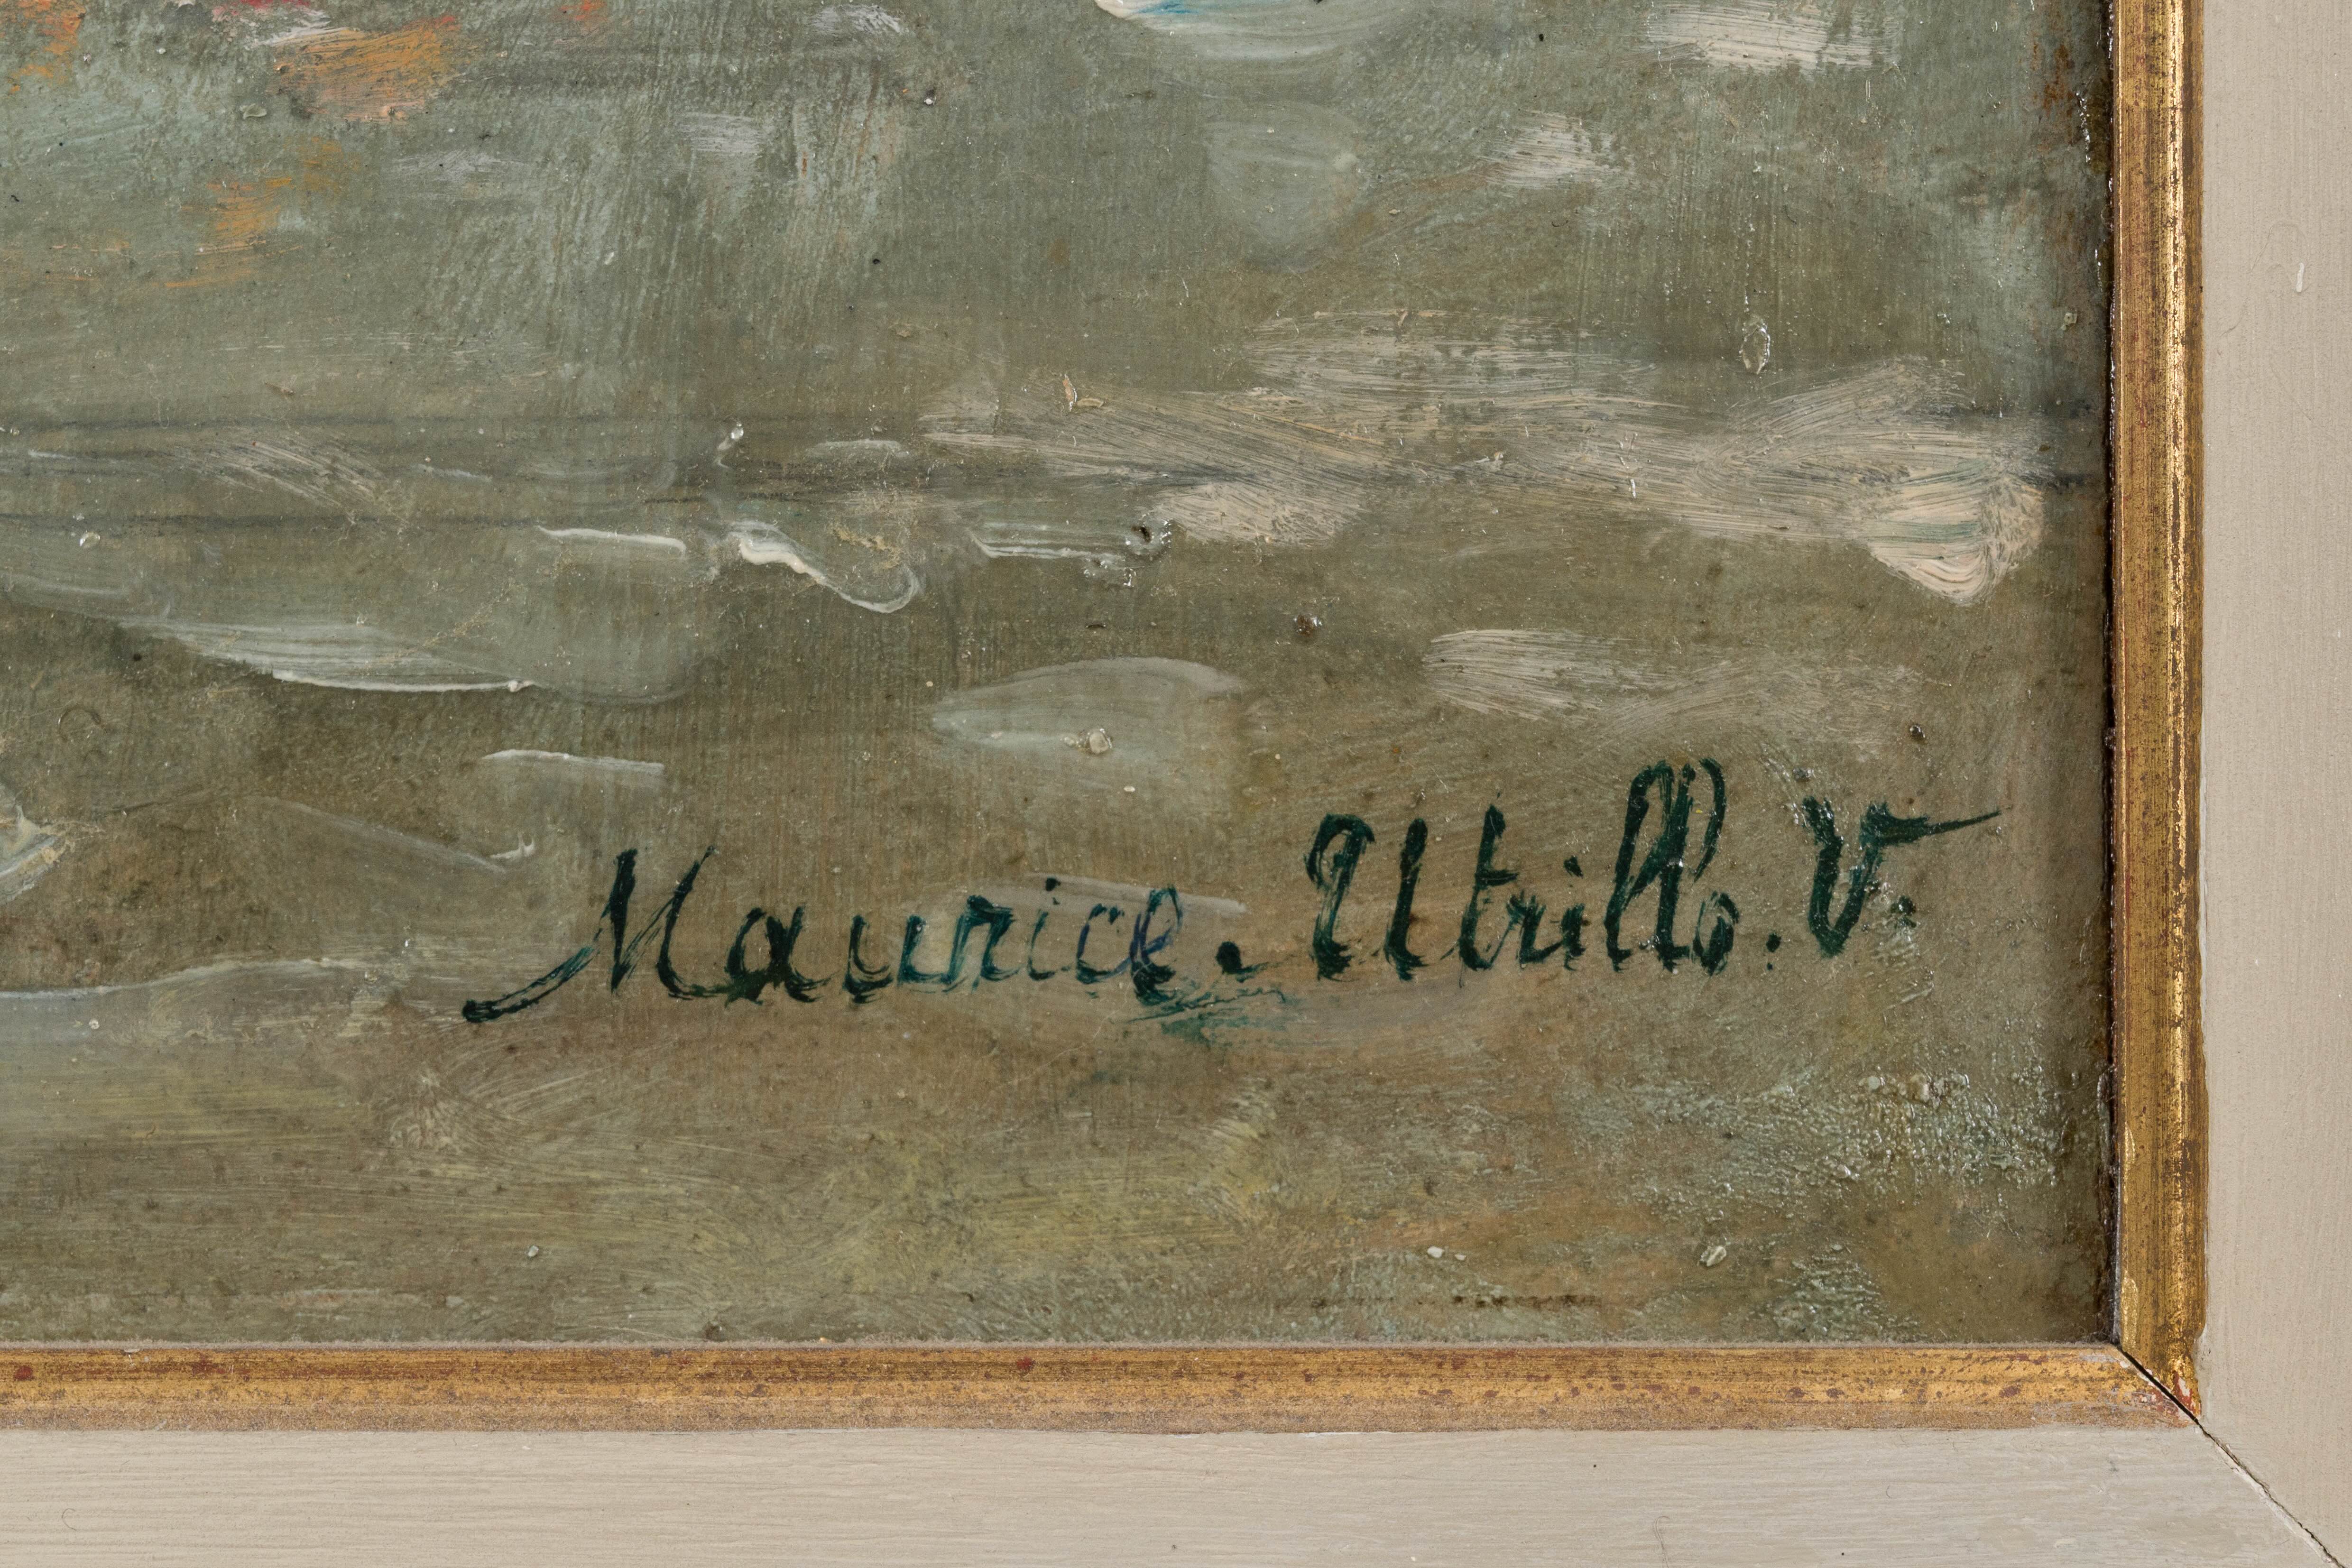 Maurice. Utrillo. V.